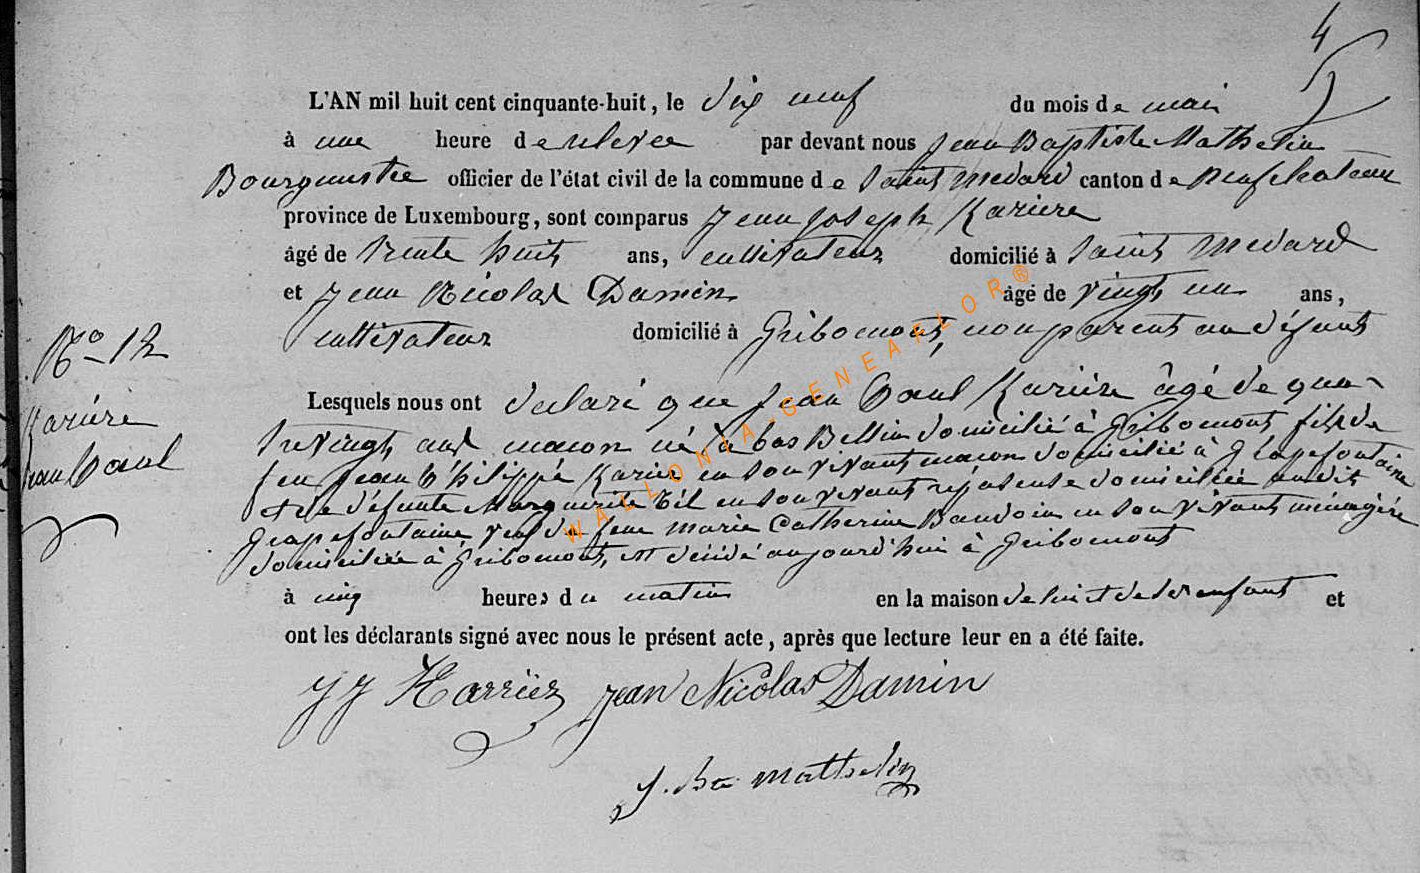 4
5
L'AN mil huit cent cinquante-huit, le dix neuf du mois de mai
à une heure de relevée par devant nous Jean Baptiste Mathelin
Bourgmestre officier de l'état civil de la commune de Saint Medard canton de Neufchateau
province de Luxembourg, sont comparus Jean Joseph Karière
âgé de trente huit ans, cultivateur domicilié à Saint Medard
et Jean Nicolas Damin âgé de vingt un ans,
cultivateur domicilié à Gribomont, non parent au défunt
No 12
Karière
Jean Paul
Lesquels nous ont déclaré que Jean Paul Karière âgé de qua-
trevingt ans maçon né à bas Bellin domicilié à Gribomont fils de
feu Jean Philippe Karier en son vivant maçon domicilié à Grapefontaine
et de défunte Marguerite en son vivant domiciliée audit
Grapefontaine veuf de feue Marie Catherine Baudoin en son vivant ménagère
domiciliée à Gribomont, est décédé aujourd'hui à Gribomont
à cinq heures du matin en la maison de lui et de ses enfants et
ont les déclarants signé avec nous le présent acte, après que lecture leur en a été faite.
JJ Karriër Jean Nicolas Damin
J. Bte Mathelin
WALLONIA-GENEAFLOR®